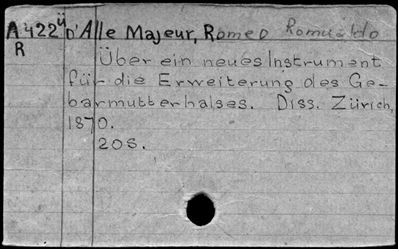 A 422 ü D'Alle Majeur, Romeo Romualdo
R
Über ein neues Instrument
für die Erweiterung des Ge-
barmutterhalses. Diss. Zürich,
1870.
20S.